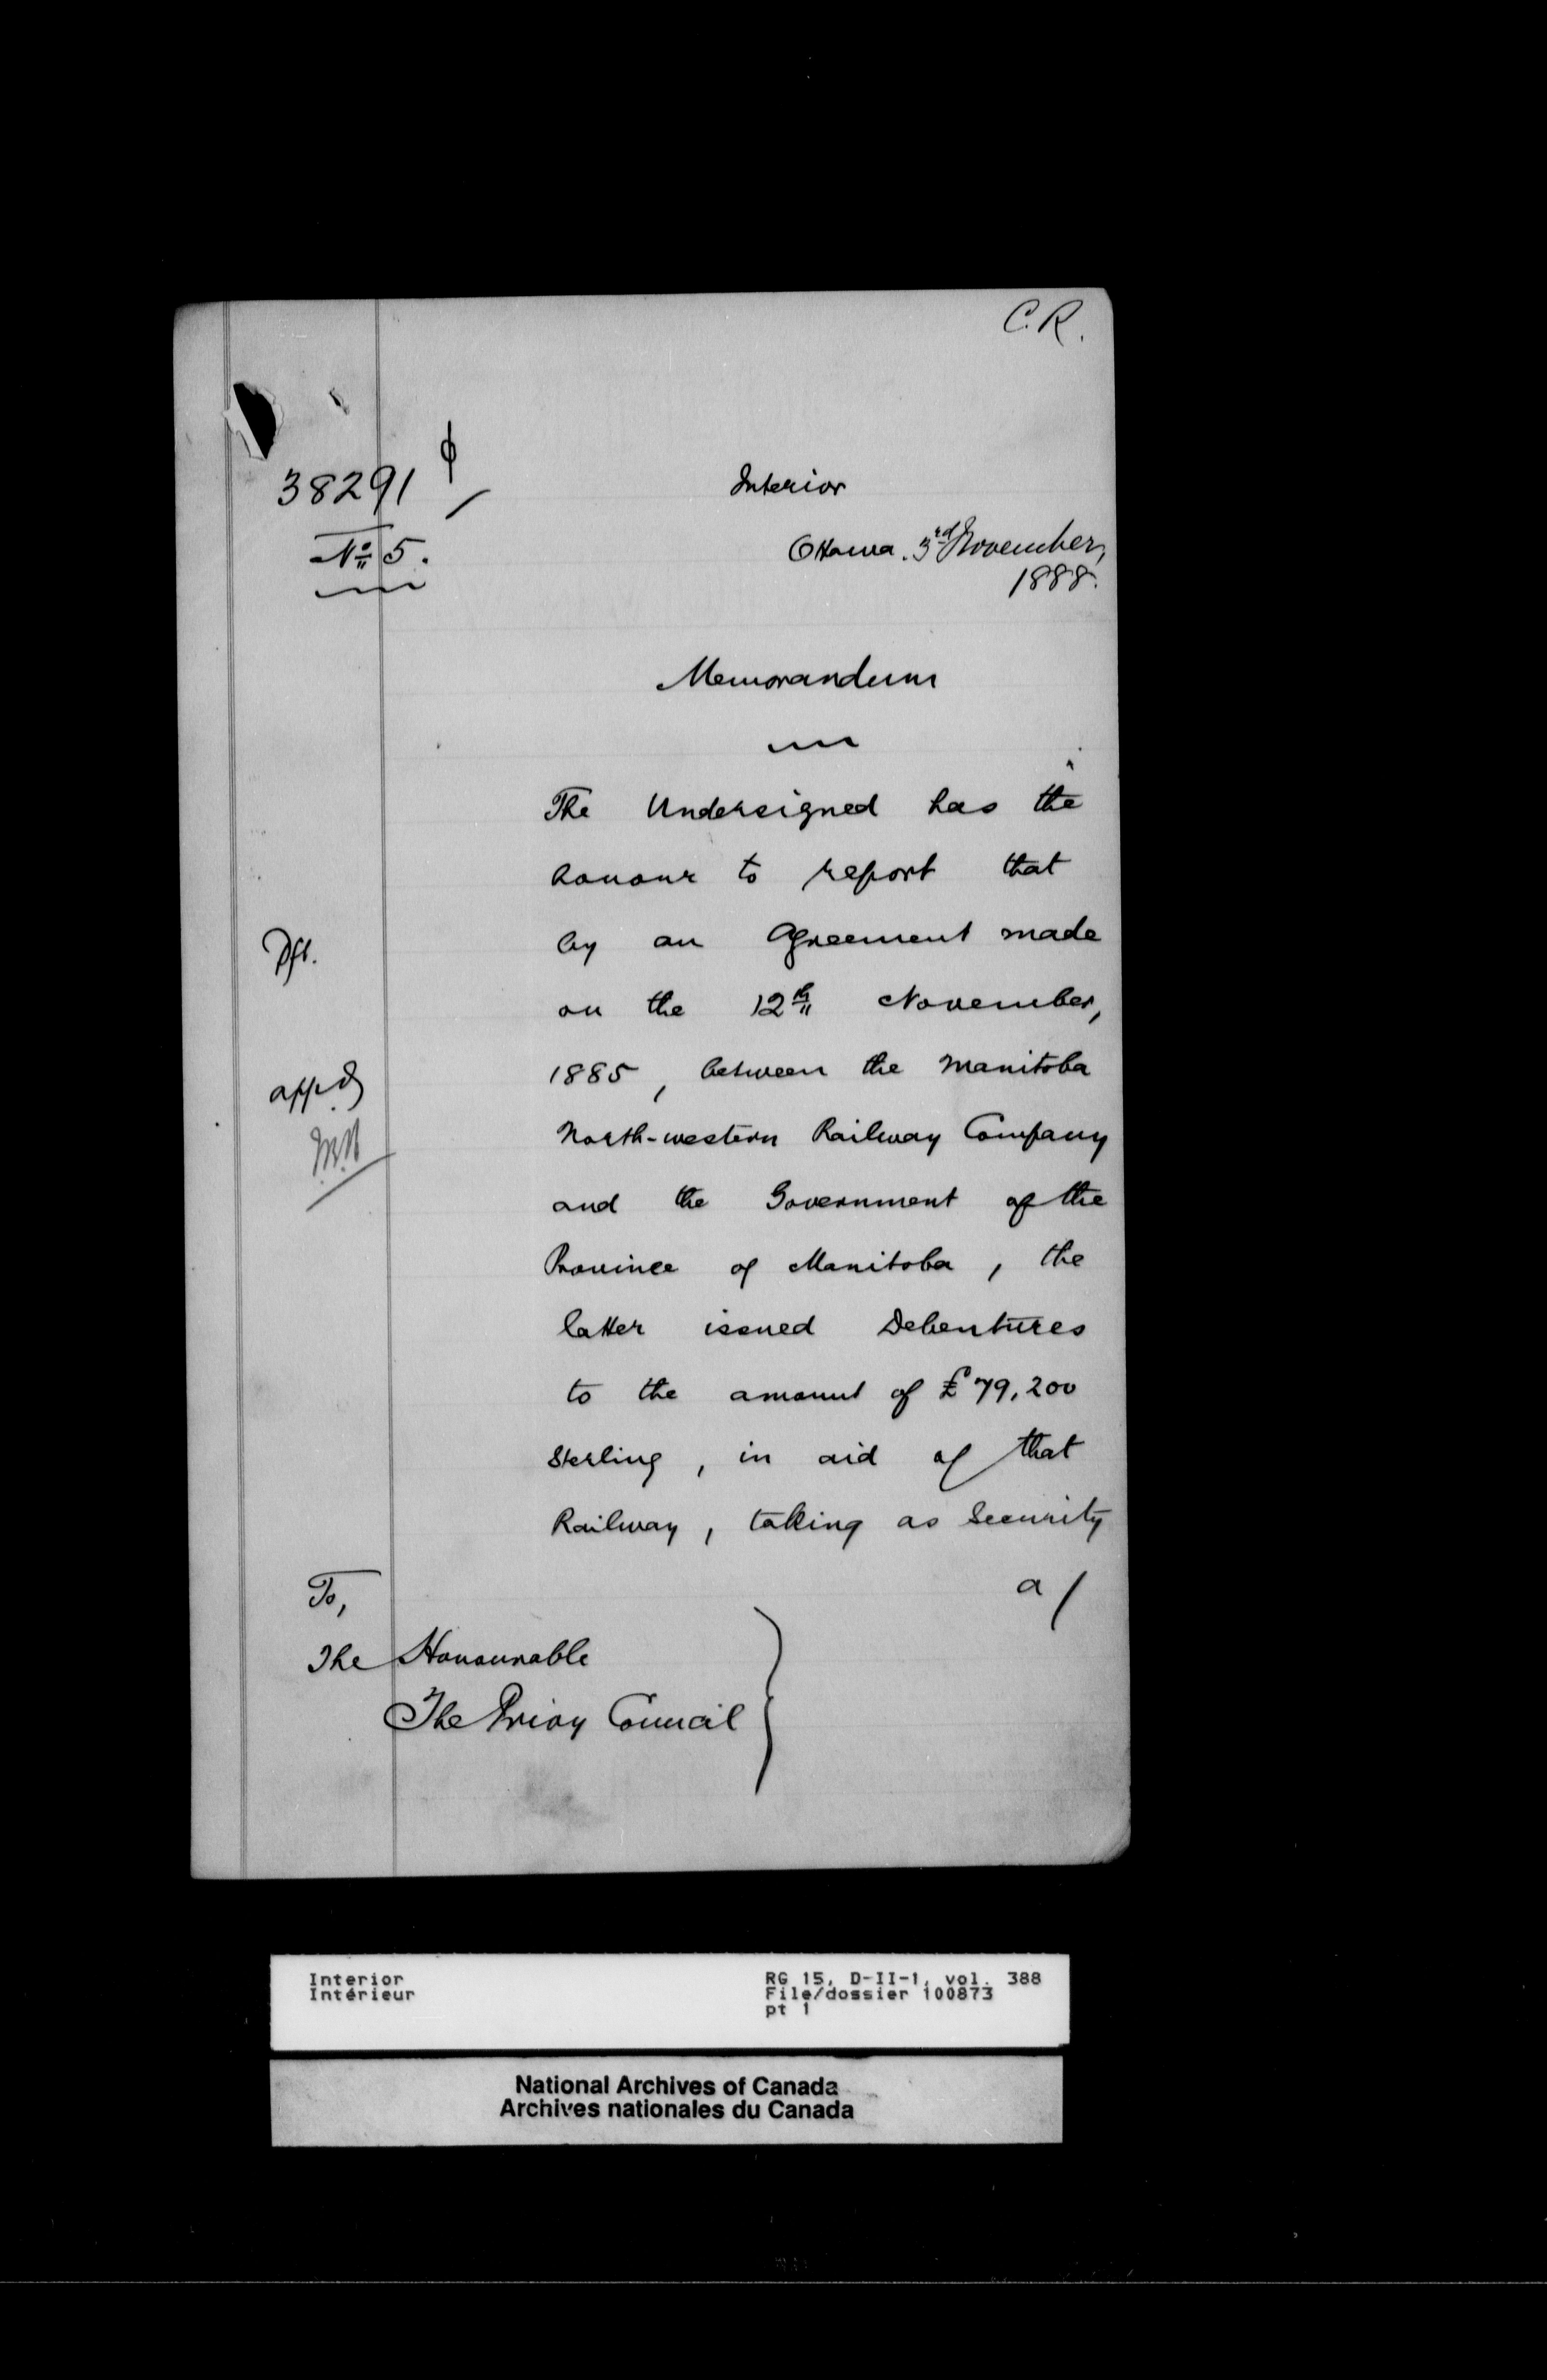 C.R.
38291
Nº 5.
Interior
Ottawa. 3rd November,
1888.
Memorandum
The Undersigned has the
honour to report that
by an Agreement made
on the 12th November,
1885, between the Manitoba
North-western Railway Company
and the Government of the
Province of Manitoba, the
latter issued Debentures
to the amount of £79,200
Sterling, in aid of that
Railway, taking as Security
a/
Dft.
appd
To,
The Honourable
The Privy Council
Interior
Intérieur
RG 15, D-II-1, vol. 388
File/dossier 100873
pt 1
National Archives of Canada
Archives nationales du Canada